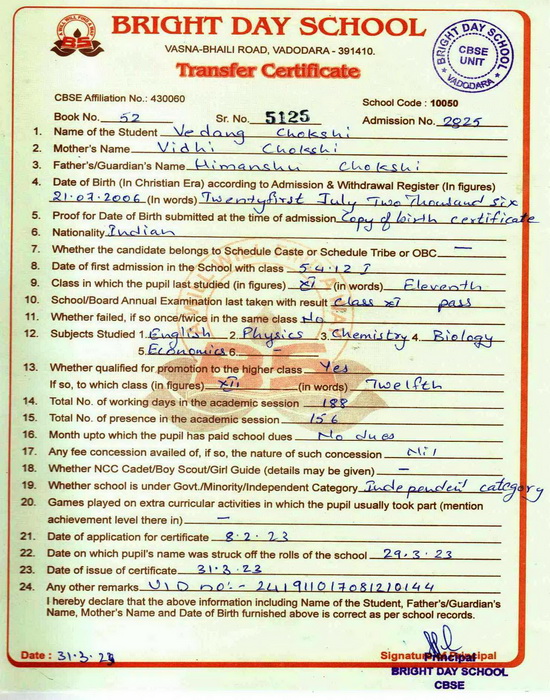 BRIGHT DAY SCHOOL
VASNA-BHAILI ROAD, VADODARA - 391410.
Transfer Certificate
BRIGHT DAY SCHOOL
CBSE
UNIT
* VADODARA *
CBSE Affiliation No.: 430060
School Code : 10050
Book No. 52 Sr. No. 5125 Admission No. 2825
1. Name of the Student Vedang Chokshi
2. Mother's Name Vidhi Chokshi
3. Father's/Guardian's Name Himanshu Chokshi
4. Date of Birth (In Christian Era) according to Admission & Withdrawal Register (In figures)
21.07.2006 (In words) Twentyfirst July Two Thousand six
5. Proof for Date of Birth submitted at the time of admission Copy of birth certificate
6. Nationality Indian
7. Whether the candidate belongs to Schedule Caste or Schedule Tribe or OBC —
8. Date of first admission in the School with class 5.4.12 I
9. Class in which the pupil last studied (in figures) XI (in words) Eleventh
10. School/Board Annual Examination last taken with result Class XI pass
11. Whether failed, if so once/twice in the same class No
12. Subjects Studied 1. English 2. Physics 3. Chemistry 4. Biology
5. Economics 6. -
13. Whether qualified for promotion to the higher class Yes
If so, to which class (in figures) XII (in words) Twelfth
14. Total No. of working days in the academic session 188
15. Total No. of presence in the academic session 156
16. Month upto which the pupil has paid school dues No dues
17. Any fee concession availed of, if so, the nature of such concession Nil
18. Whether NCC Cadet/Boy Scout/Girl Guide (details may be given) —
19. Whether school is under Govt./Minority/Independent Category Independent category
20. Games played on extra curricular activities in which the pupil usually took part (mention
achievement level there in) —
21. Date of application for certificate 8.2.23
22. Date on which pupil's name was struck off the rolls of the school 29.3.23
23. Date of issue of certificate 31.3.23
24. Any other remarks UID no:- 241911017081210144
I hereby declare that the above information including Name of the Student, Father's/Guardian's
Name, Mother's Name and Date of Birth furnished above is correct as per school records.
Date : 31.3.23 Signature of Principal
Principal
BRIGHT DAY SCHOOL
CBSE